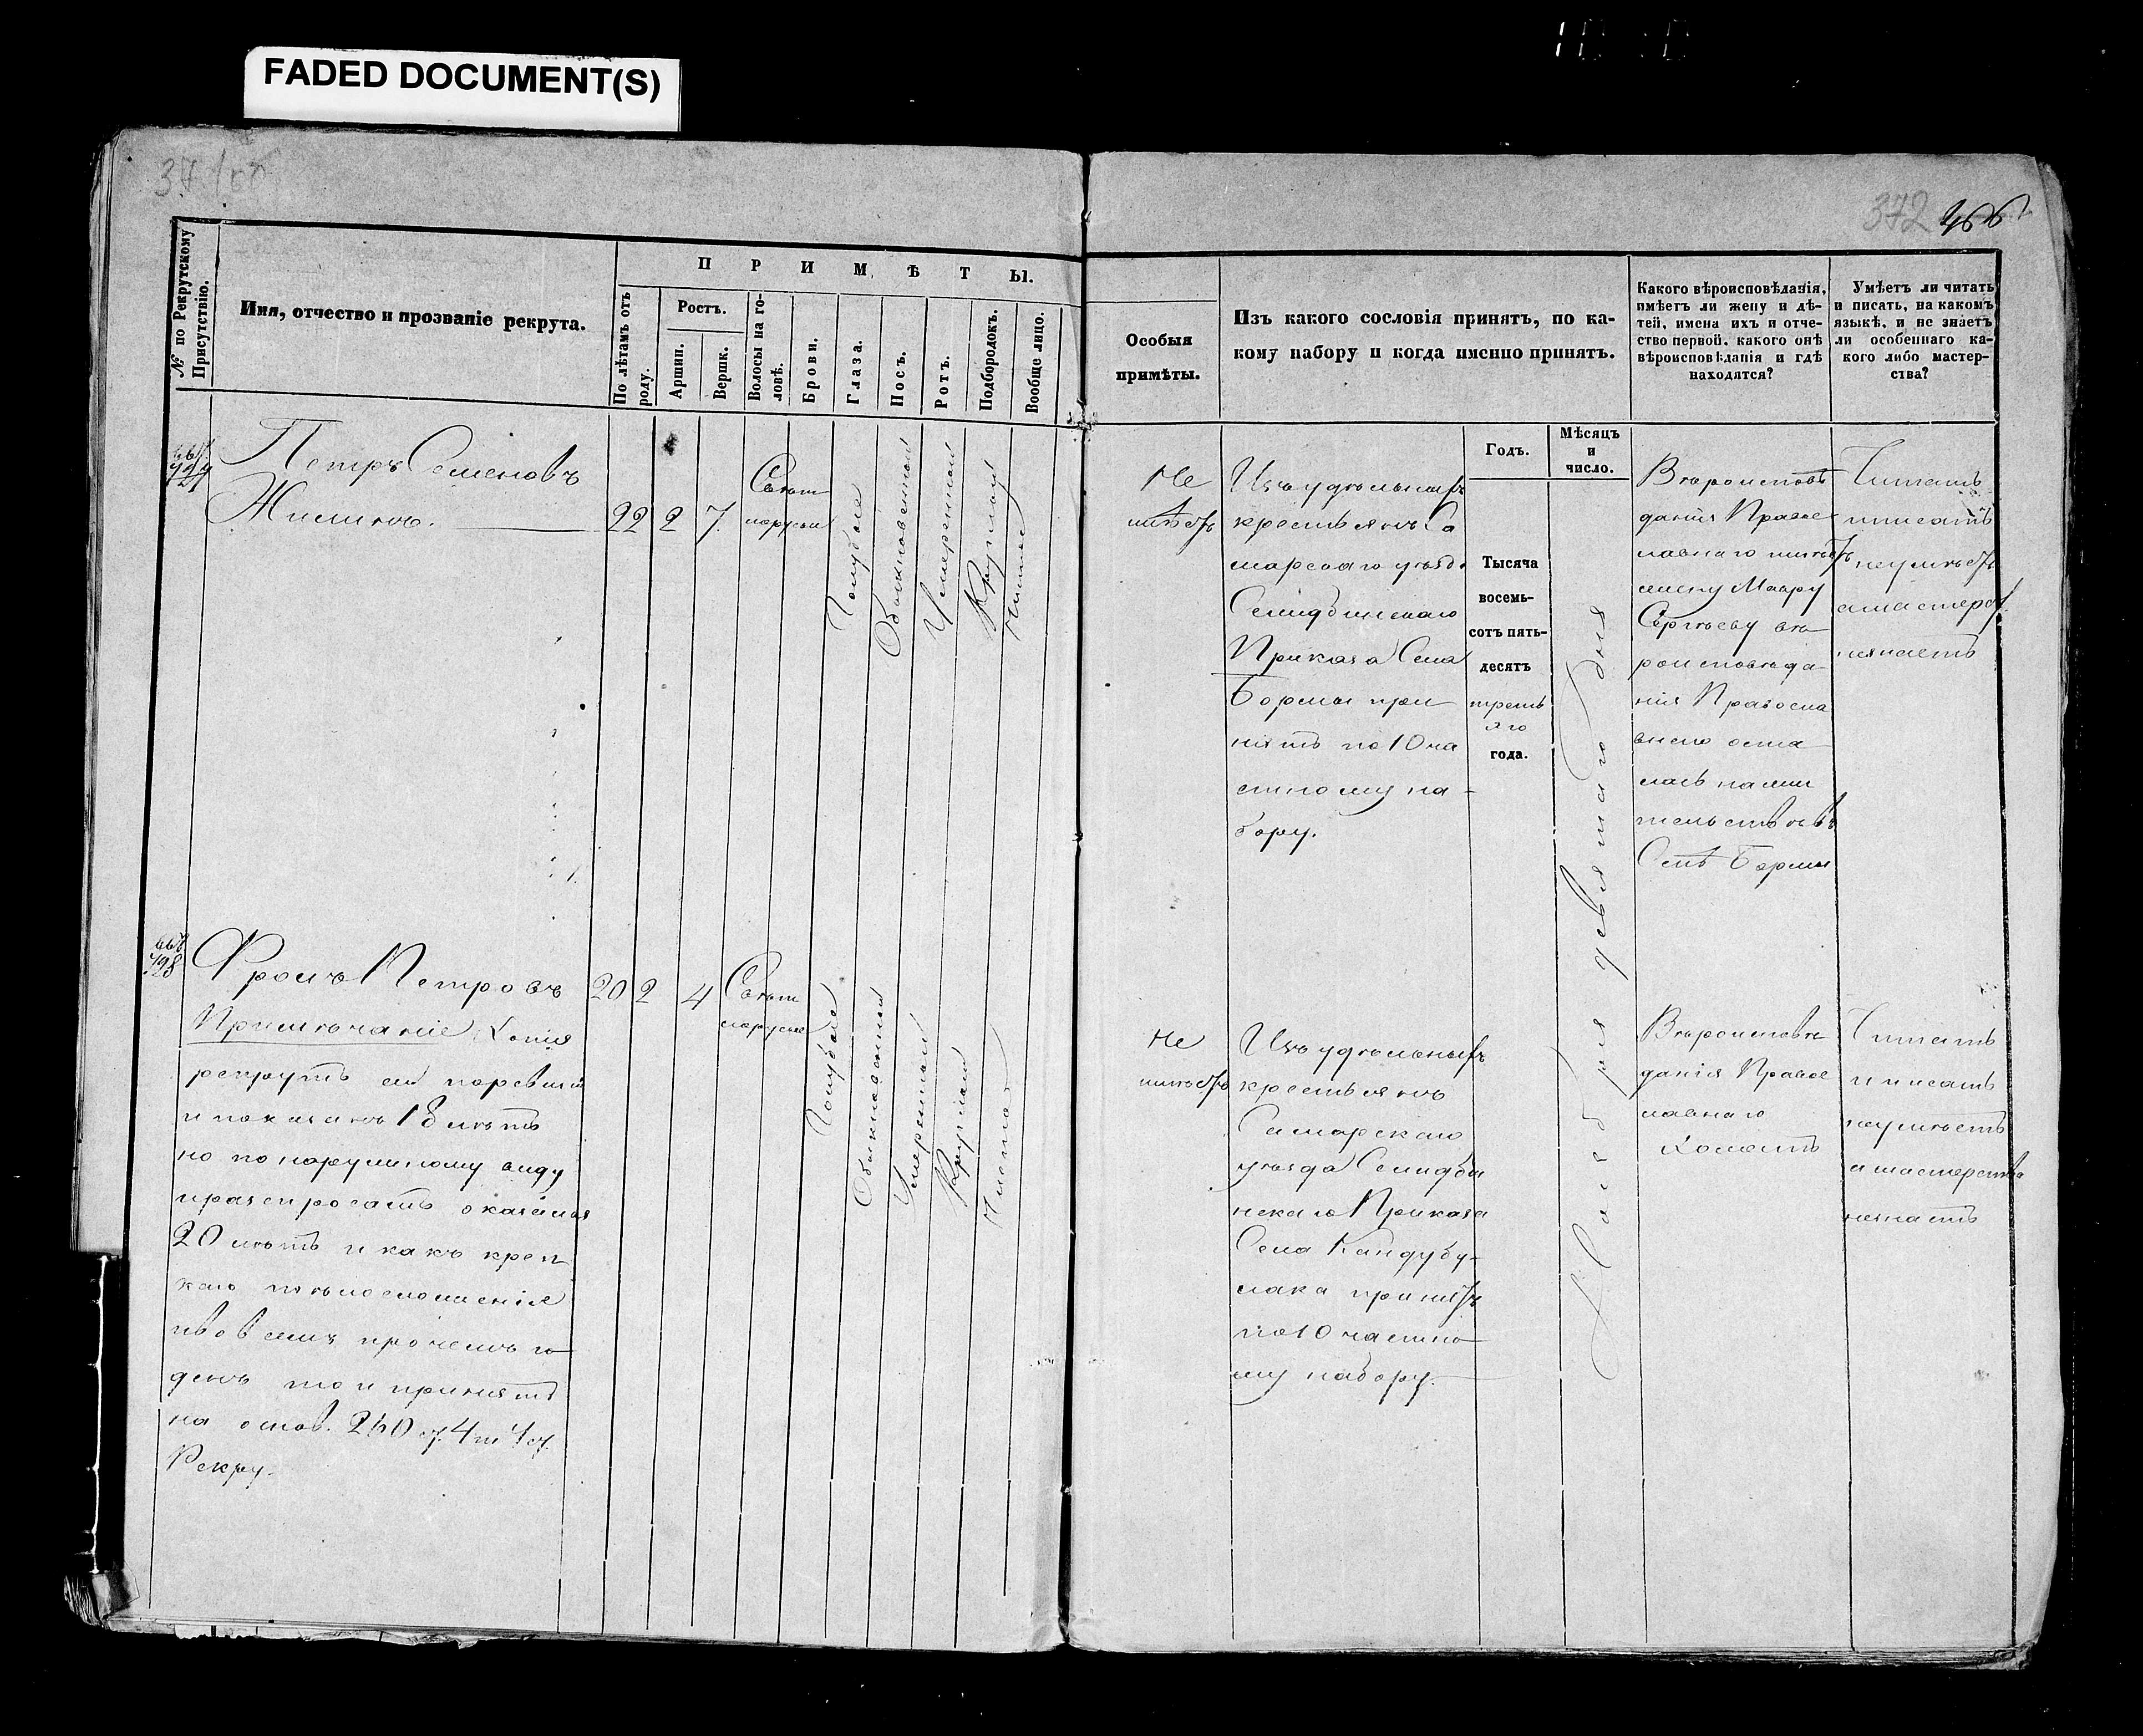 FADED DOCUMENT(S)
372 466
№ по Рекрутскому
Присутствію.
Имя, отчество и прозваніе рекрута.
ПРИМѢТЫ.
По лѣтамъ отъ
роду.
Ростъ.
Аршин.
Вершк.
Волосы на го-
ловѣ.
Брови.
Глаза.
Носъ.
Ротъ.
Подбородокъ.
Вообще лицо.
Особыя
примѣты.
Изъ какого сословія принятъ, по ка-
кому набору и когда именно принятъ.
Какого вѣроисповѣданія,
имѣетъ ли жену и дѣ-
тей, имена ихъ и отче-
ство первой, какого онѣ
вѣроисповѣданія и гдѣ
находятся?
Умѣетъ ли читать
и писать, на какомъ
языкѣ, и не знаетъ
ли особеннаго ка-
кого либо мастер-
ства?
Годъ.
Мѣсяцъ
и
число.
Петръ Семеновъ
Жилинъ.
22 2 7.
Свѣтл
лорусыя
Голубые
Обыкновенный
Умеренный
Круглый
Чистое
Не
имѣетъ
Изъ удѣльныхъ
крестьянъ Са
марскаго уѣзд.
Сейдбинскаго
Приказа Села
Бормы при
нятъ по 10 ча
стному на-
бору.
Тысяча
восемь-
сотъ пять-
десятъ
треть
яго
года.
Ноября девятаго дня
Вѣроисповѣ
данія Правос
лавнаго имѣетъ
жену Мавру
Сергѣеву вѣ
роисповѣда-
нія Правосла
внаго оста
лась на жи
тельствѣ въ
Селѣ Бормы
Читать
писать
неумѣетъ
а мастерст.
незнаетъ
Фролъ Петровъ
Примѣчаніе Хотя
рекрутъ сей по ревизіи
и показанъ 18 лѣтъ
но по наружному виду
20 лѣтъ и какъ креп
каго тѣлосложенія
и во всемъ прочемъ го
денъ то и принятъ
на основ. 260 ст. 4 т. 4 ст.
Рекру.
20 2 4
Свѣтл
лорусые
Голубые
Обыкновенный
Умеренный
Круглый
Чистое
Не
имѣетъ
Изъ удѣльныхъ
крестьянъ
Самарскаго
уѣзда Сейдби
нскаго Приказа
Села Кандубу-
лака принятъ
по 10 частно
му набору.
Вѣроисповѣ
данія Правос
лавнаго
Холостъ
Читать
и писать
неумѣетъ
а мастерства
незнаетъ